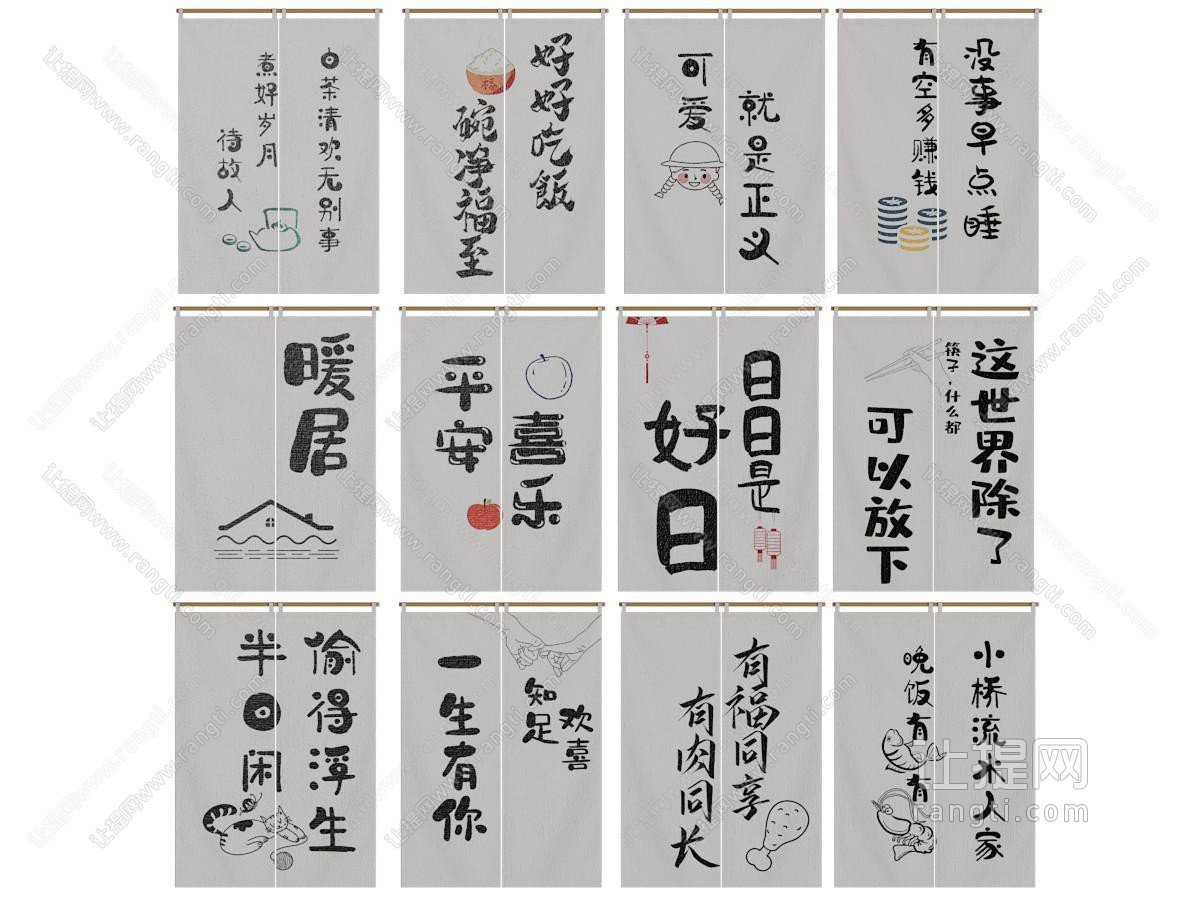 日茶清欢无别事
煮好岁月
待故人
好好吃飯
碗净福至
福
可爱
就是正义
没事早点睡
有空多赚钱
暖居
平安
喜乐
日日是
好日
这世界除了
筷子，什么都
可以放下
偷得浮生
半日闲
一生有你
知足
欢喜
有福同享
有肉同长
小桥流水人家
晚饭有有
让提网
rangti.com
让提网www.rangti.com